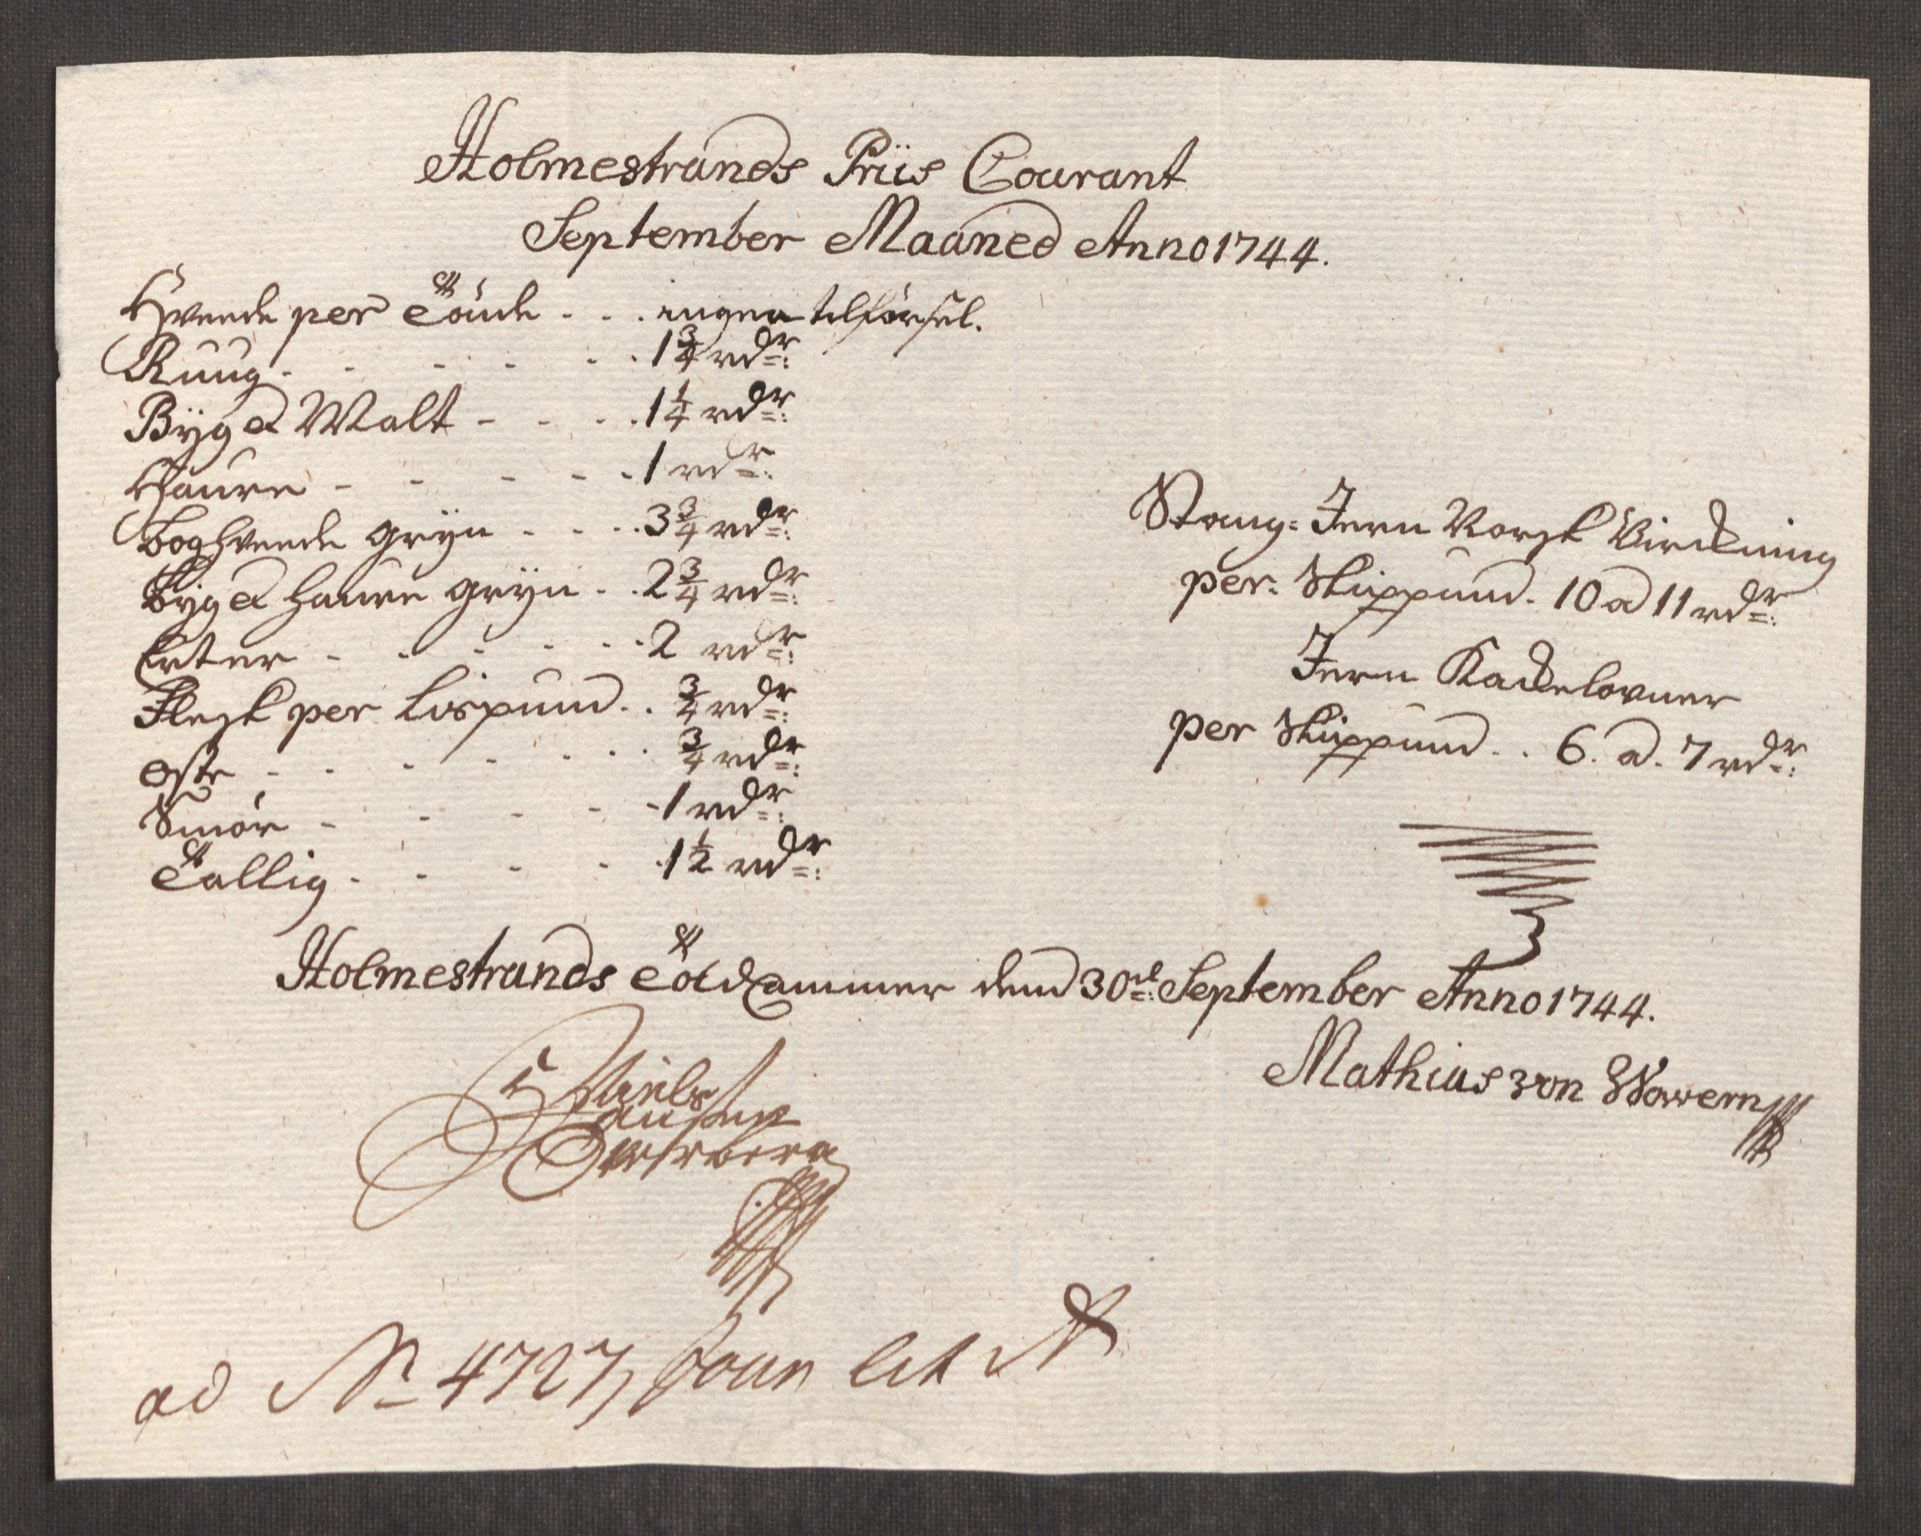 Holmestrands Priis Courant
September Maaned Anno 1744.
Hveede per Tönde . . . ingen tilførsel.
Ruug . . . . . . 1 3/4 rdr:
Byg & Malt - - . . 1 1/4 rdr:
Haure - - - - - 1 rdr:
Boghveede gryn . . . . 3 3/4 rdr:
Byg & haure gryn . . 2 3/4 rdr:
Erter - . . . . . 2 rdr:
Flesk per Lispund . . 3/4 rdr:
Oste - - . . . . 3/4 rdr:
Smör - - - - - 1 rdr:
Tallig . . . . . 1 1/2 rdr:
Stang-Jern Norsk Virckning
per: Skippund . 10 a 11 rdr:
Jern Kackelovner
per Skippund . . 6. a. 7 rdr:
Holmestrands Told Cammer dend 30te: September Anno 1744.
Mathias von Wowern
Niels
ad No 4727, lit A